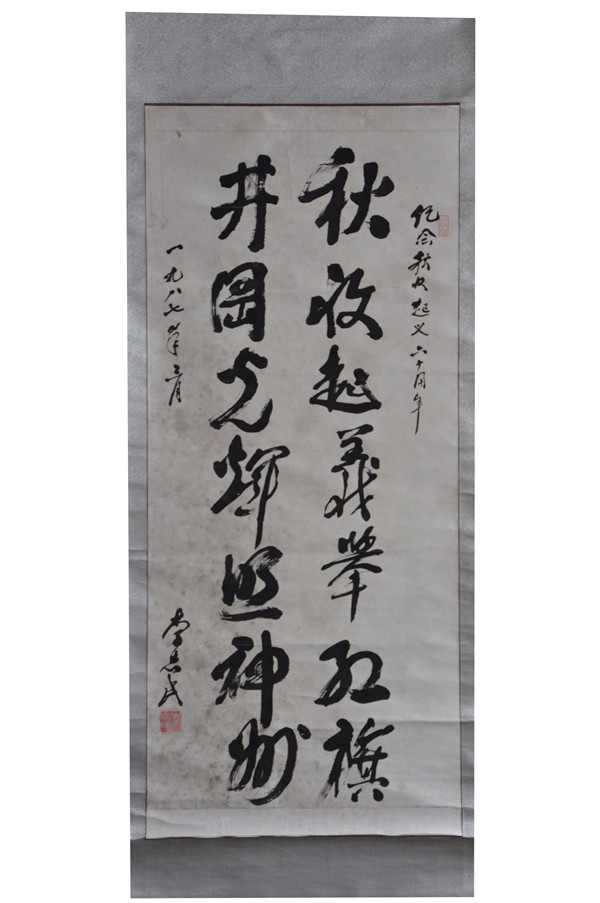 纪念秋收起义六十周年
秋收起義舉红旗
井岡光輝照神州
一九八七年三月
李志民